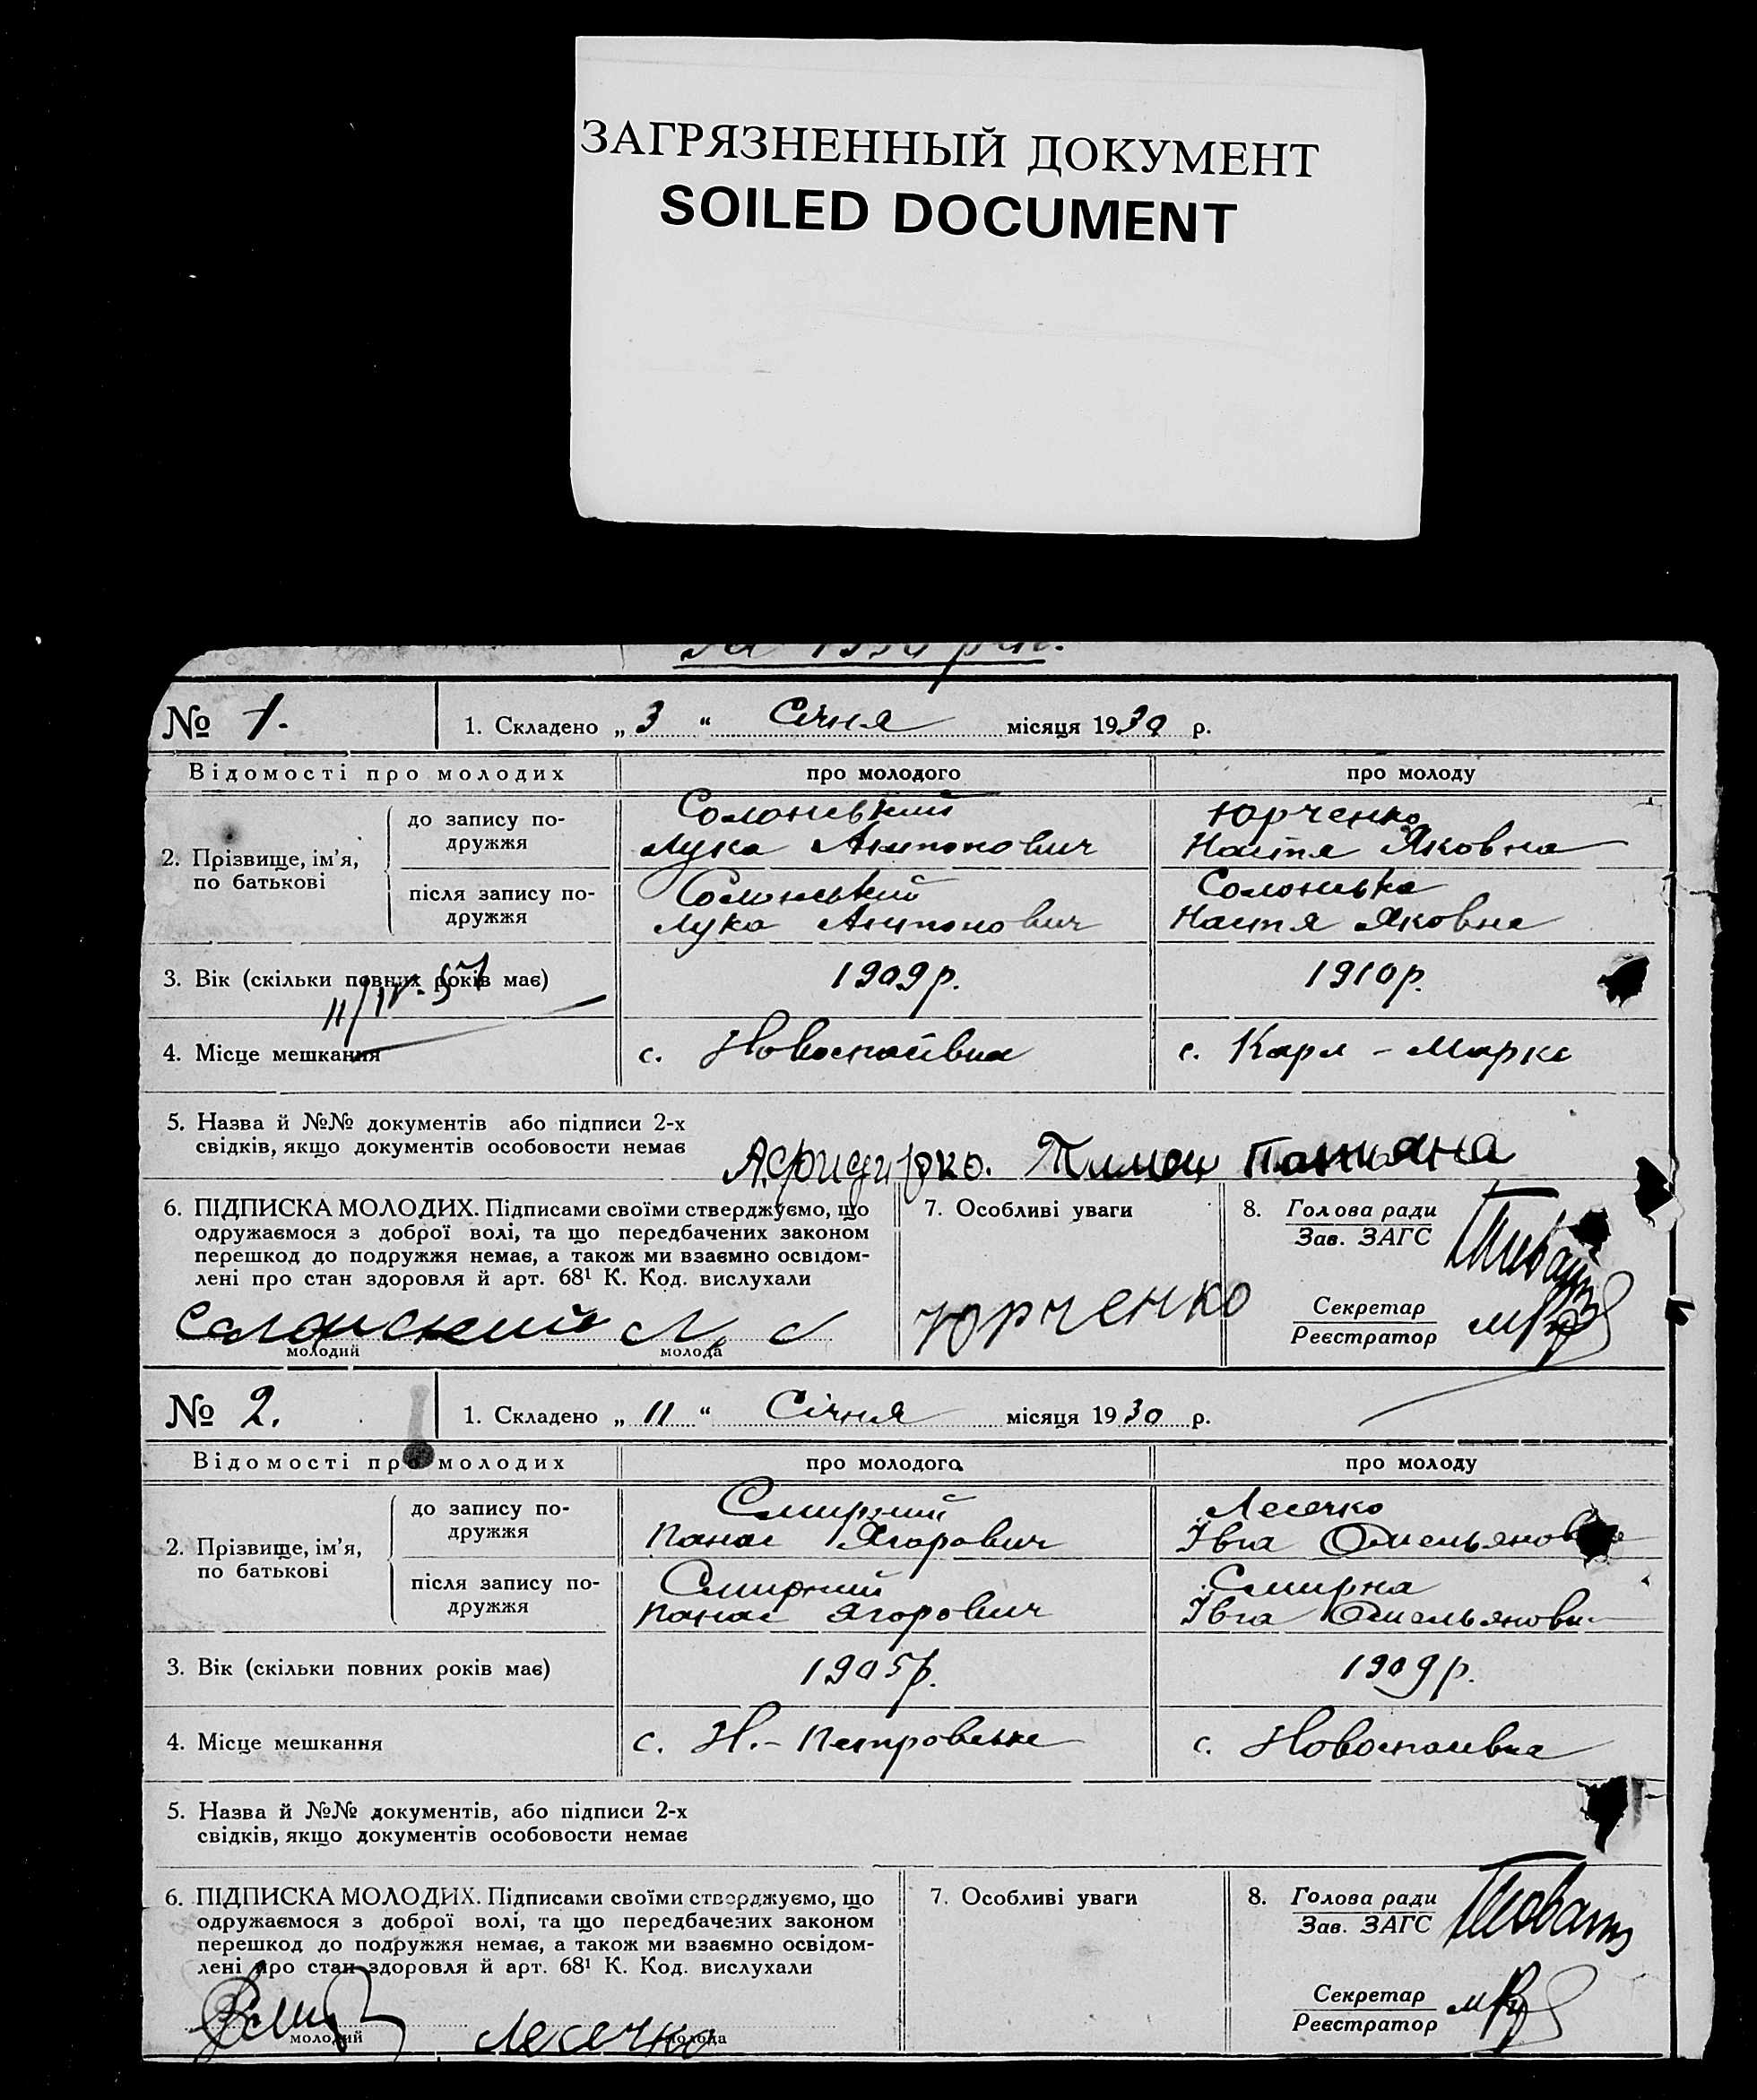 ЗАГРЯЗНЕННЫЙ ДОКУМЕНТ
SOILED DOCUMENT
№ 1.
1. Складено „ 3 “ Січня місяця 1930 р.
Відомості про молодих
про молодого
про молоду
2. Прізвище, ім’я,
по батькові
до запису по-
дружжя
Солонський
Лука Антонович
Юрченко
Настя Яковна
після запису по-
дружжя
Солонський
Лука Антонович
Солонська
Настя Яковна
3. Вік (скільки повних років має)
1909р.
1910р.
11/IV-57
4. Місце мешкання
с. Новоспаівка
с. Карл - Маркс
5. Назва й №№ документів або підписи 2-х
свідків, якщо документів особовости немає
Татяна
6. ПІДПИСКА МОЛОДИХ. Підписами своїми стверджуємо, що
одружаємося з доброї волі, та що передбачених законом
перешкод до подружжя немає, а також ми взаємно освідом-
лені про стан здоровля й арт. 68¹ К. Код. вислухали
молодий
молода
7. Особливі уваги
Юрченко
8. Голова ради
Зав. ЗАГС
Секретар
Реєстратор
№ 2.
1. Складено „ 11 “ Січня місяця 1930 р.
Відомості про молодих
про молодого
про молоду
2. Прізвище, ім’я,
по батькові
до запису по-
дружжя
Смирний
Панас Ягорович
Лесечко
Івга
після запису по-
дружжя
Смирний
Панас Ягорович
Смирна
Івга Омельяновн
3. Вік (скільки повних років має)
1905р.
1909р.
4. Місце мешкання
с. Н.-Петровське
с. Новоспаівка
5. Назва й №№ документів, або підписи 2-х
свідків, якщо документів особовости немає
6. ПІДПИСКА МОЛОДИХ. Підписами своїми стверджуємо, що
одружаємося з доброї волі, та що передбачених законом
перешкод до подружжя немає, а також ми взаємно освідом-
лені про стан здоровля й арт. 68¹ К. Код. вислухали
молодий
Лесечко
молода
7. Особливі уваги
8. Голова ради
Зав. ЗАГС
Секретар
Реєстратор